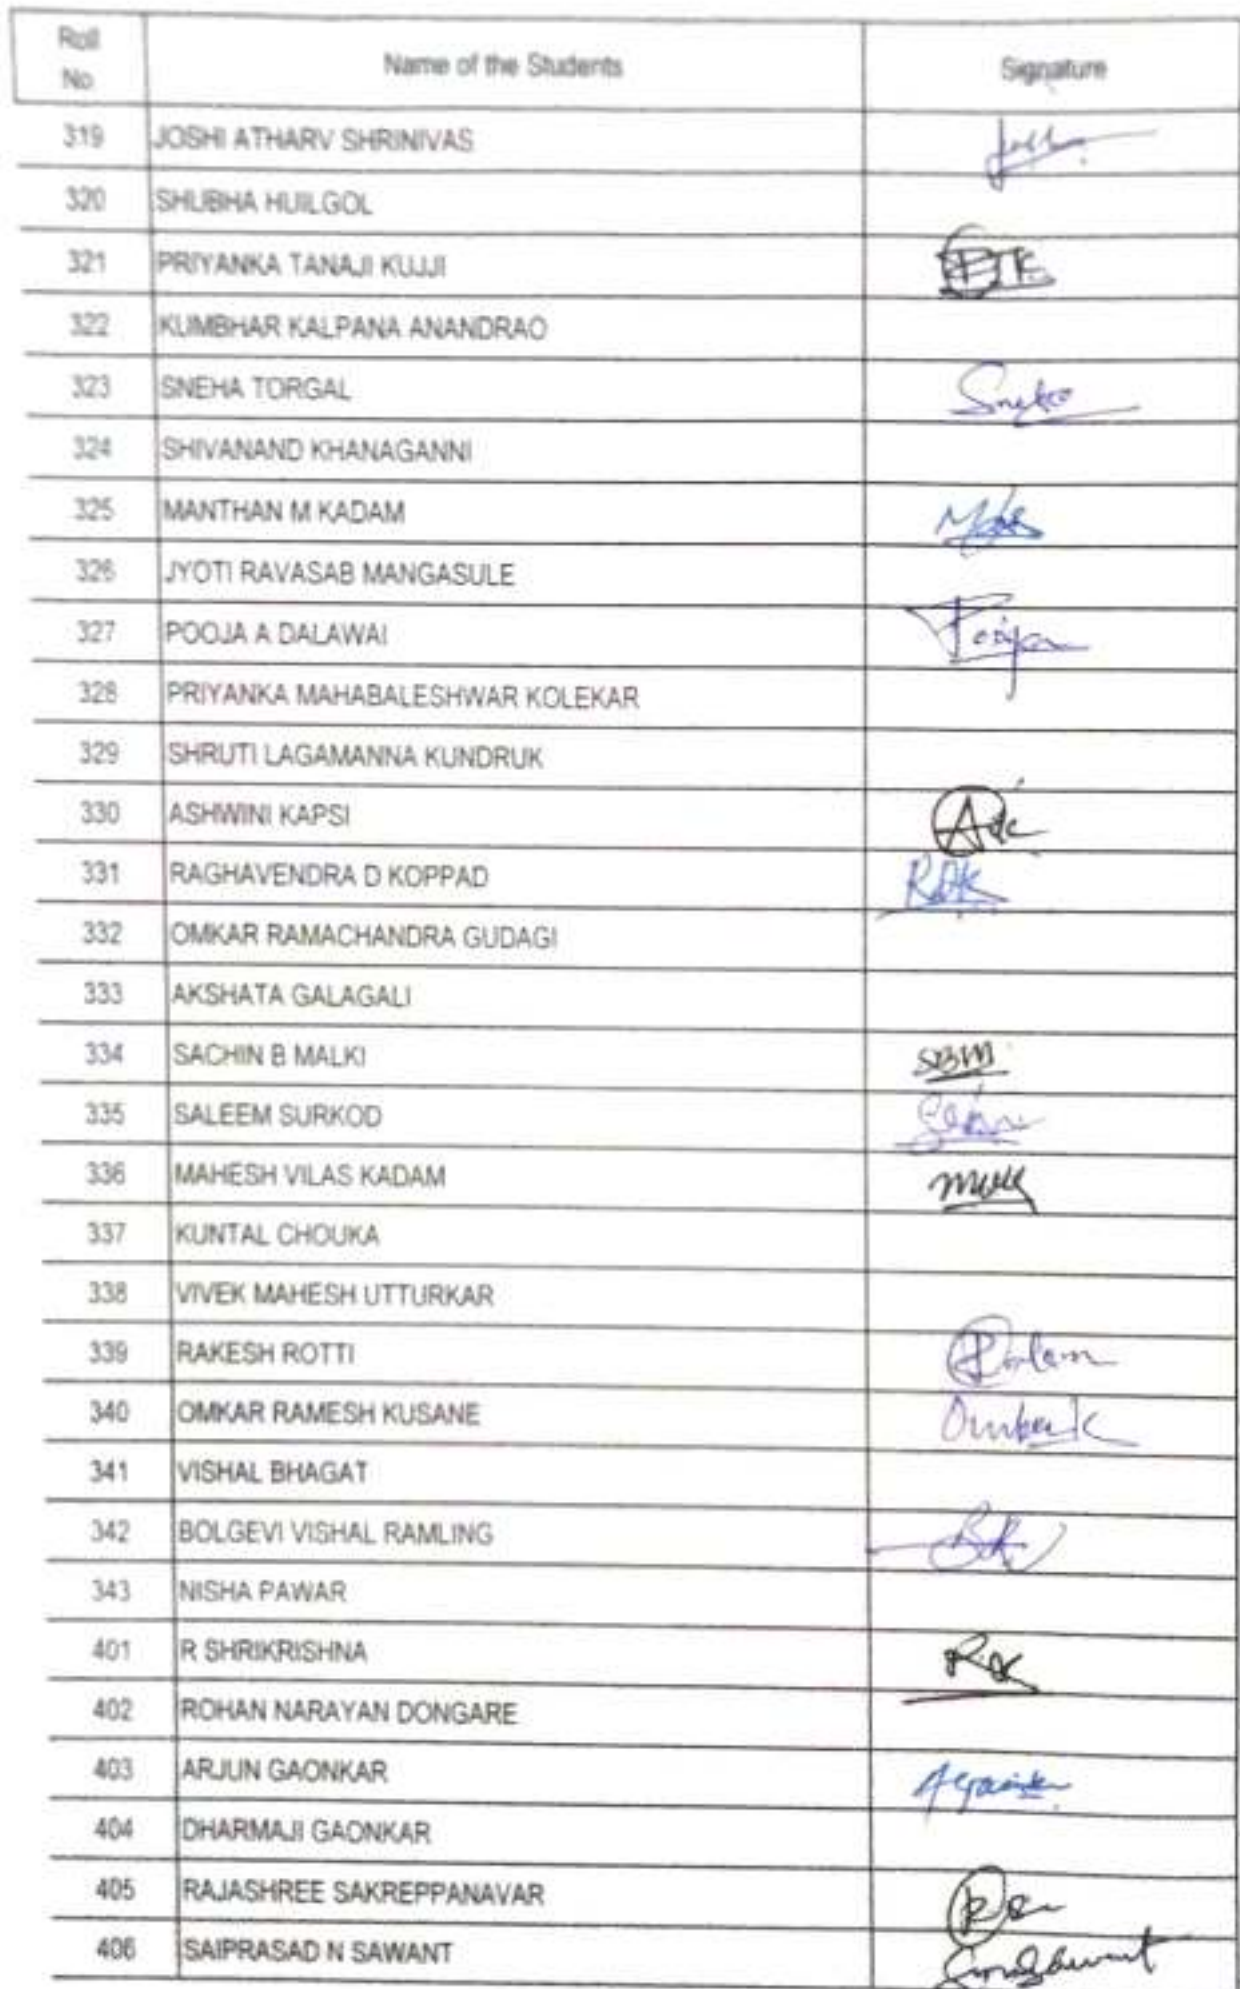 Roll No | Name of the Students | Signature
319 JOSHI ATHARV SHRINIVAS
320 SHUBHA HUILGOL
321 PRIYANKA TANAJI KUJJI
322 KUMBHAR KALPANA ANANDRAO
323 SNEHA TORGAL
324 SHIVANAND KHANAGANNI
325 MANTHAN M KADAM
326 JYOTI RAVASAB MANGASULE
327 POOJA A DALAWAI
328 PRIYANKA MAHABALESHWAR KOLEKAR
329 SHRUTI LAGAMANNA KUNDRUK
330 ASHWINI KAPSI
331 RAGHAVENDRA D KOPPAD
332 OMKAR RAMACHANDRA GUDAGI
333 AKSHATA GALAGALI
334 SACHIN B MALKI SBM
335 SALEEM SURKOD
336 MAHESH VILAS KADAM
337 KUNTAL CHOUKA
338 VIVEK MAHESH UTTURKAR
339 RAKESH ROTTI
340 OMKAR RAMESH KUSANE
341 VISHAL BHAGAT
342 BOLGEVI VISHAL RAMLING
343 NISHA PAWAR
401 R SHRIKRISHNA
402 ROHAN NARAYAN DONGARE
403 ARJUN GAONKAR
404 DHARMAJI GAONKAR
405 RAJASHREE SAKREPPANAVAR
406 SAIPRASAD N SAWANT